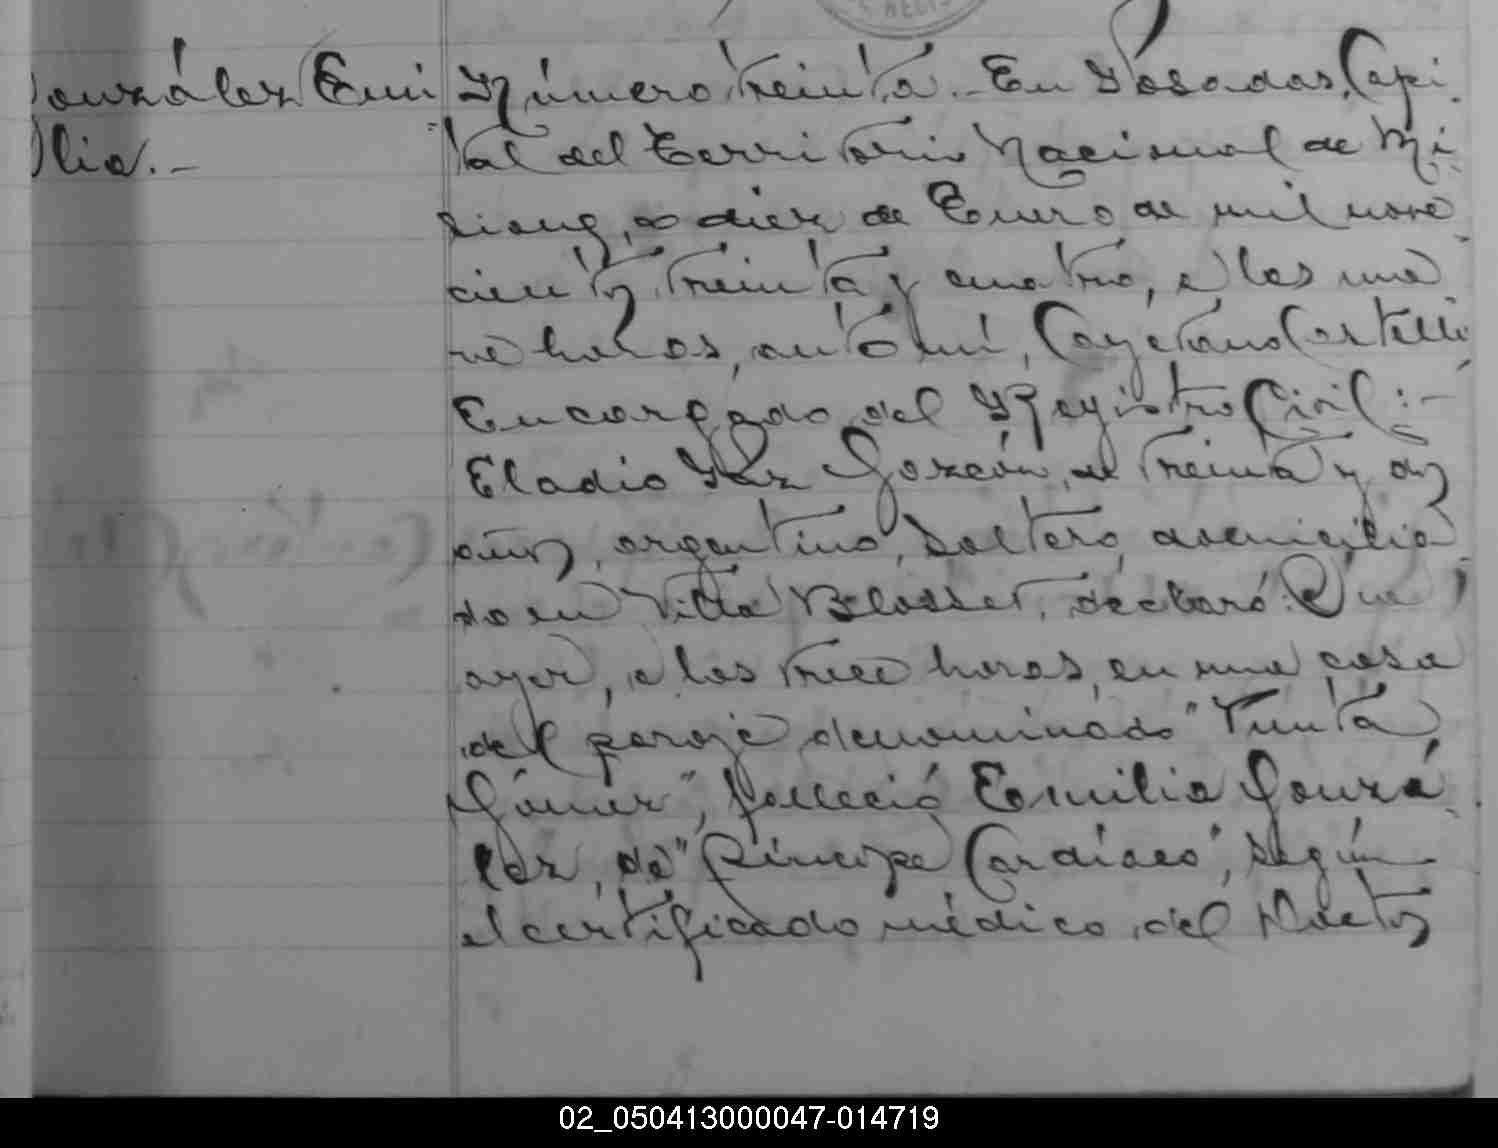 González Emi
lia.-
Número treinta.- En Posadas, Capi
tal del Territorio Nacional de Mi
siones, a diez de Enero de mil nove
cientos treinta y cuatro, a las nue
ve horas, ante mí, Cayetano Castelli
Encargado del Registro Civil:-
Eladio Garzón, de treinta y dos
años, argentino, soltero, domicilia
do en Villa Blosset, declaró: Que
ayer, a las trece horas, en una casa
del paraje denominado "Punta
Gómez", falleció Emilia Gonzá
lez, de "Síncope Cardíaco", según
el certificado médico del Doctor
02_050413000047-014719